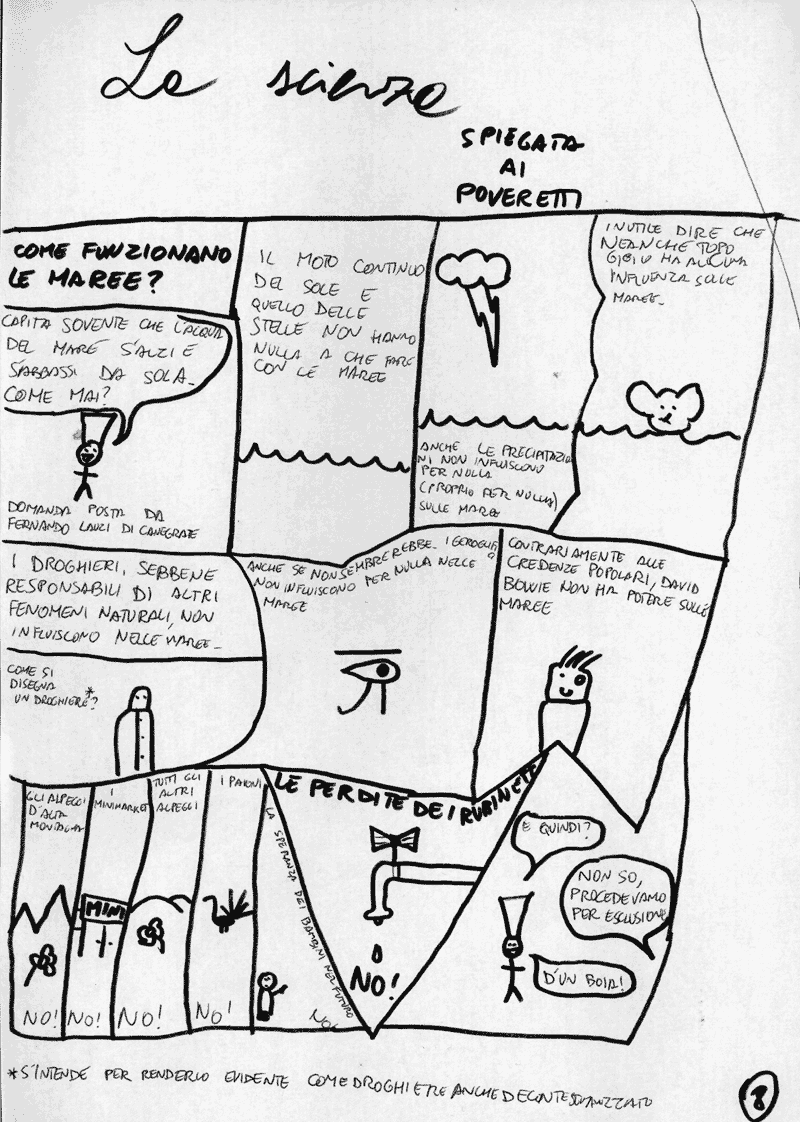 La scienza
SPIEGATA
AI
POVERETTI
COME FUNZIONANO
LE MAREE?
CAPITA SOVENTE CHE L'ACQUA
DEL MARE S'ALZI E
S'ABBASSI DA SOLA.
COME MAI?
DOMANDA POSTA DA
FERNANDO LAUZI DI CANEGRATE
IL MOTO CONTINUO
DEL SOLE E
QUELLO DELLE
STELLE NON HANNO
NULLA A CHE FARE
CON LE MAREE
ANCHE LE PRECIPITAZIO
NI NON INFLUISCONO
PER NULLA
(PROPRIO PER NULLA)
SULLE MAREE
INUTILE DIRE CHE
NEANCHE TOPO
GIGIO HA ALCUNA
INFLUENZA SULLE
MAREE.
I DROGHIERI, SEBBENE
RESPONSABILI DI ALTRI
FENOMENI NATURALI, NON
INFLUISCONO NELLE MAREE.
COME SI
DISEGNA
UN DROGHIERE*?
ANCHE SE NON SEMBREREBBE. I GEROGLIFICI
NON INFLUISCONO PER NULLA NELLE
MAREE
CONTRARIAMENTE ALLE
CREDENZE POPOLARI, DAVID
BOWIE NON HA POTERE SULLE
MAREE
GLI ALPEGGI
D'ALTA
MONTAGNA
NO!
I
MINIMARKET
MINI
NO!
TUTTI GLI
ALTRI
ALPEGGI
NO!
I PAVONI
NO!
LA SPERANZA DEI BAMBINI NEL FUTURO
NO!
LE PERDITE DEI RUBINETTI
NO!
E QUINDI?
NON SO,
PROCEDEVAMO
PER ESCLUSIONE
D'UN BOIA!
*S'INTENDE PER RENDERLO EVIDENTE COME DROGHIERE ANCHE DECONTESTUALIZZATO
8